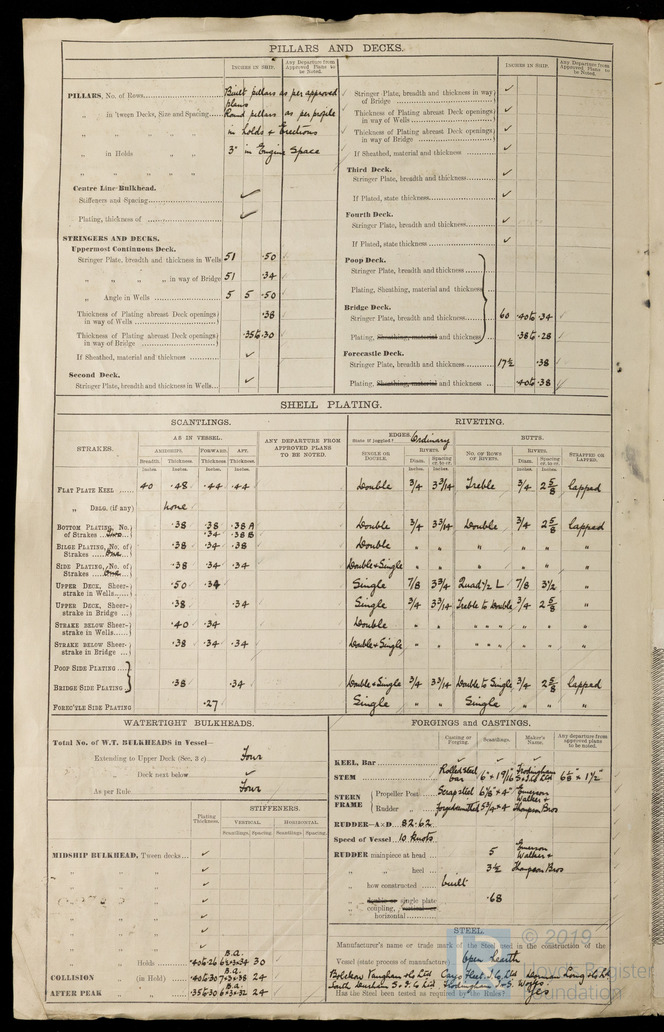 PILLARS AND DECKS.
INCHES IN SHIP.
Any Departure from Approved Plans to be Noted.
PILLARS, No. of Rows Built pillars as per approved plans
„ in 'tween Decks, Size and Spacing Round pillars as per profile
„ „ „ „ in holds & Erections
„ in Holds „ „ 3" in Engine Space
„ „ „ „
Centre Line Bulkhead.
Stiffeners and Spacing ✓
Plating, thickness of ✓
STRINGERS AND DECKS.
Uppermost Continuous Deck.
Stringer Plate, breadth and thickness in Wells 51 .50
„ „ „ „ in way of Bridge 51 .34
„ Angle in Wells 5 5 .50
Thickness of Plating abreast Deck openings in way of Wells .38
Thickness of Plating abreast Deck openings in way of Bridge .35 to .30
If Sheathed, material and thickness ✓
Second Deck.
Stringer Plate, breadth and thickness in Wells ✓
INCHES IN SHIP.
Any Departure from Approved Plans to be Noted.
Stringer Plate, breadth and thickness in way of Bridge ✓
Thickness of Plating abreast Deck openings in way of Wells ✓
Thickness of Plating abreast Deck openings in way of Bridge ✓
If Sheathed, material and thickness ✓
Third Deck.
Stringer Plate, breadth and thickness ✓
If Plated, state thickness ✓
Fourth Deck.
Stringer Plate, breadth and thickness ✓
If Plated, state thickness ✓
Poop Deck.
Stringer Plate, breadth and thickness
Plating, Sheathing, material and thickness
Bridge Deck.
Stringer Plate, breadth and thickness 60 .40 to .34
Plating, Sheathing, material and thickness .38 to .28
Forecastle Deck.
Stringer Plate, breadth and thickness 17½ .38
Plating, Sheathing, material and thickness .40 to .38
SHELL PLATING.
SCANTLINGS.
RIVETING.
STRAKES.
AS IN VESSEL.
AMIDSHIPS. FORWARD. AFT.
Breadth. Thickness. Thickness. Thickness.
Inches. Inches. Inches. Inches.
ANY DEPARTURE FROM APPROVED PLANS TO BE NOTED.
EDGES. Ordinary
State if joggled?
BUTTS.
SINGLE OR DOUBLE.
RIVETS.
Diam. Spacing cr. to cr.
Inches. Inches.
No. OF ROWS OF RIVETS.
RIVETS.
Diam. Spacing cr. to cr.
Inches. Inches.
STRAPPED OR LAPPED.
FLAT PLATE KEEL 40 .48 .44 .44 Double 3/4 3 3/14 Treble 3/4 2 5/8 lapped
„ DBLG. (if any) None
BOTTOM PLATING, No. of Strakes Two .38 .38 .38 A Double 3/4 3 3/14 Double 3/4 2 5/8 lapped
.34 .38 B
BILGE PLATING, No. of Strakes One .38 .34 .38 Double „ „ „ „ „ „
SIDE PLATING, No. of Strakes One .38 .34 .34 Double & Single „ „ „ „ „ „
UPPER DECK, Sheerstrake in Wells .50 .34 Single 7/8 3 3/4 Quad ½ L 7/8 3½ „
UPPER DECK, Sheerstrake in Bridge .38 .34 Single 3/4 3 3/14 Treble to Double 3/4 2 5/8 „
STRAKE BELOW Sheerstrake in Wells .40 .34 Double „ „ „ „ „ „ „
STRAKE BELOW Sheerstrake in Bridge .38 .34 .34 Double & Single „ „ „ „ „ „ „
POOP SIDE PLATING
BRIDGE SIDE PLATING .38 .34 Double & Single 3/4 3 3/14 Double to Single 3/4 2 5/8 lapped
FOREC'TLE SIDE PLATING .27 Single „ „ Single „ „ „
WATERTIGHT BULKHEADS.
Total No. of W.T. BULKHEADS in Vessel—
Extending to Upper Deck (Sec. 3 c) Four
„ Deck next below ✓
As per Rule Four
Plating Thickness.
STIFFENERS.
VERTICAL. HORIZONTAL.
Scantlings. Spacing. Scantlings. Spacing.
MIDSHIP BULKHEAD, 'Tween decks ✓
„ „ „ ✓
„ „ ✓
„ „ ✓
„ „ ✓
„ „ ✓
B.a.
„ Holds .40 to .26 6 × 3 × .34 30
B.a.
COLLISION „ (in Hold) .40 to .30 7 × 3 × .38 24
B.a.
AFTER PEAK „ „ .35 to .30 6 × 3 × .32 24
FORGINGS and CASTINGS.
Casting or Forging. Scantlings. Maker's Name. Any departure from approved plans to be noted.
KEEL, Bar ✓ ✓ ✓
STEM Rolled steel bar 6" × 1 9/16 Frodingham S & I Co Ltd 6⅝" × 1½"
STERN FRAME
Propeller Post Scrap steel 6⅞" × 4" Emerson Walker &
Rudder „ forged smithed 5¾ × 4 Thompson Bros
RUDDER—A×D 82.62
Speed of Vessel 10 Knots
RUDDER mainpiece at head 5 Emerson Walker &
„ „ heel 3½ Thompson Bros
„ how constructed built
„ double or single plate .68
„ coupling, vertical or horizontal
STEEL.
Manufacturer's name or trade mark of the Steel used in the construction of the
Vessel (state process of manufacture) Open Hearth
Bolckow Vaughan & Co Ltd Cargo Fleet I. Co Ltd Dorman Long & Co Ld
South Durham S. & I. Co Ltd Frodingham I. & S. Works
Has the Steel been tested as required by the Rules? Yes
© 2019
Lloyd's Register
Foundation